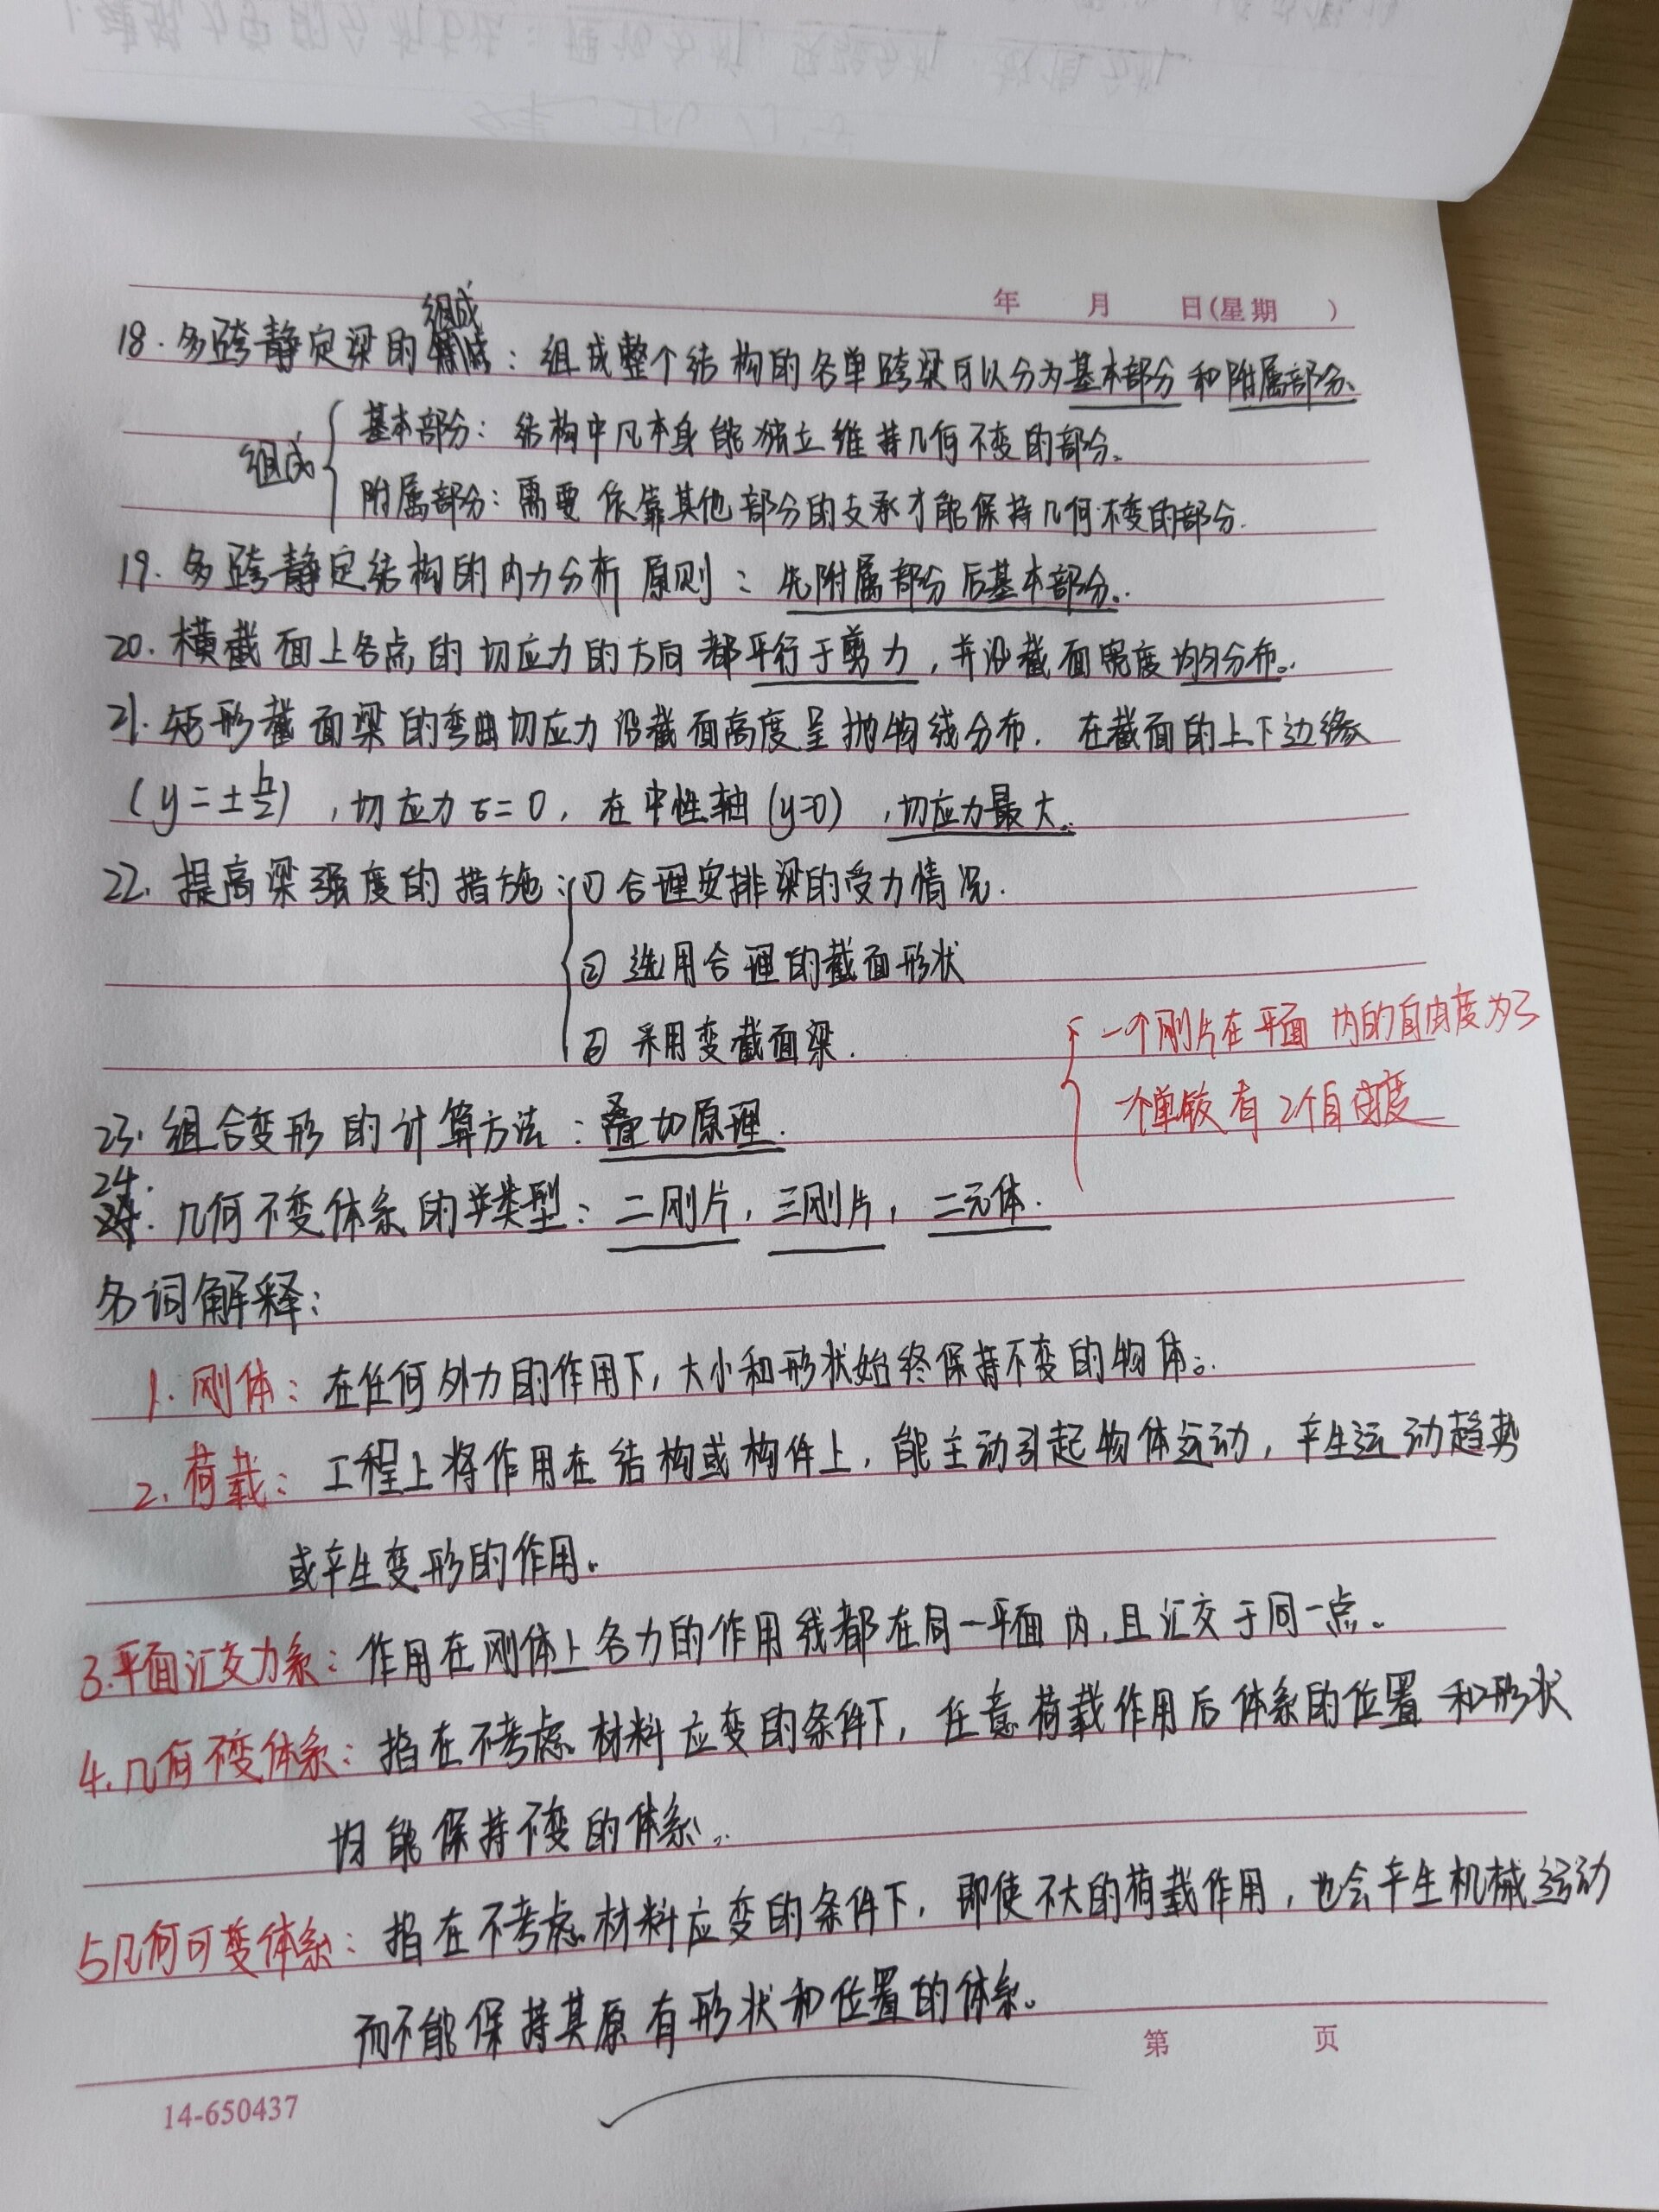 年 月 日(星期 )
18. 多跨静定梁的组成：组成整个结构的各单跨梁可以分为基本部分和附属部分。
组成
基本部分：结构中凡本身能独立维持几何不变的部分。
附属部分：需要依靠其他部分的支承才能保持几何不变的部分.
19. 多跨静定结构的内力分析原则：先附属部分后基本部分。
20. 横截面上各点的切应力的方向都平行于剪力，并沿截面宽度均匀分布。
21. 矩形截面梁的弯曲切应力沿截面高度呈抛物线分布. 在截面的上下边缘
(y=±h/2)，切应力τ=0，在中性轴(y=0)，切应力最大。
22. 提高梁强度的措施：① 合理安排梁的受力情况.
② 选用合理的截面形状
③ 采用变截面梁.
一个刚片在平面内的自由度为3
一个单铰有2个自由度
23. 组合变形的计算方法：叠加原理.
24. 几何不变体系的类型：二刚片，三刚片，二元体.
名词解释：
1. 刚体：在任何外力的作用下，大小和形状始终保持不变的物体。
2. 荷载：工程上将作用在结构或构件上，能主动引起物体运动，产生运动趋势
或产生变形的作用。
3.平面汇交力系：作用在刚体上各力的作用线都在同一平面内，且汇交于同一点。
4.几何不变体系：指在不考虑材料应变的条件下，任意荷载作用后体系的位置和形状
均能保持不变的体系。
5几何可变体系：指在不考虑材料应变的条件下，即使不大的荷载作用，也会产生机械运动
而不能保持其原有形状和位置的体系。
第 页
14-650437